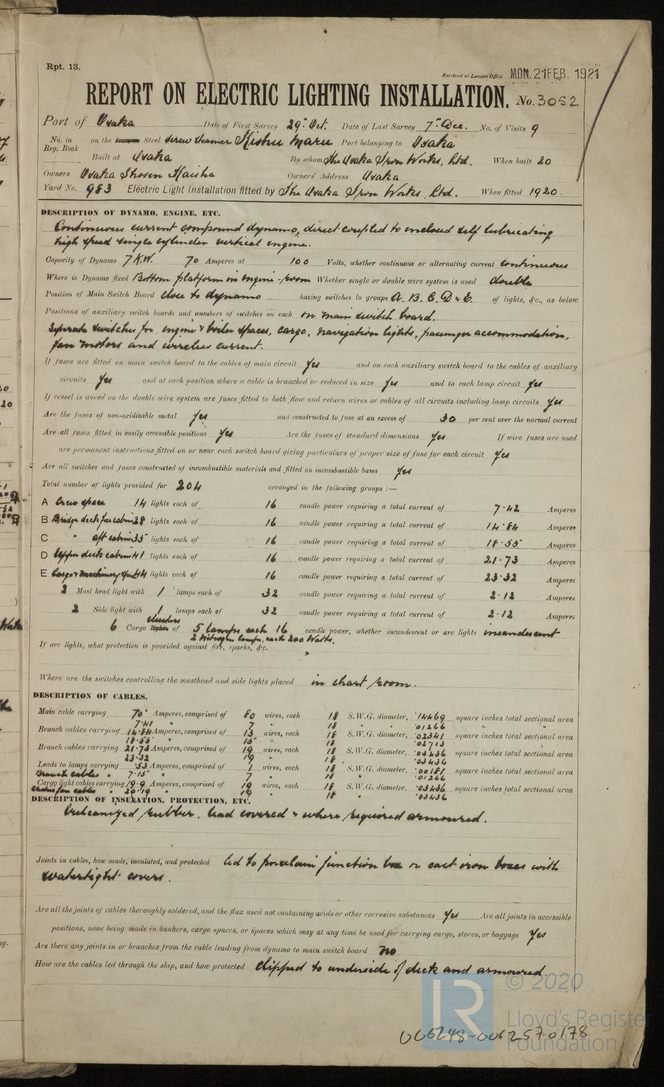 Rpt. 13.
Received at London Office MON. 21 FEB. 1921
REPORT ON ELECTRIC LIGHTING INSTALLATION. No. 3052
Port of Osaka Date of First Survey 29th Oct. Date of Last Survey 7th Dec. No. of Visits 9
No. in Reg. Book on the Steel Screw Steamer Kishu Maru Port belonging to Osaka
Built at Osaka By whom The Osaka Iron Works, Ltd. When built 20
Owners Osaka Shosen Kaisha Owners' Address Osaka
Yard No. 983 Electric Light Installation fitted by The Osaka Iron Works, Ltd. When fitted 1920.
DESCRIPTION OF DYNAMO, ENGINE, ETC.
Continuous current compound dynamo, direct coupled to enclosed self lubricating
high speed single cylinder vertical engine.
Capacity of Dynamo 7 K.W. 70 Amperes at 100 Volts, whether continuous or alternating current continuous
Where is Dynamo fixed Bottom platform in engine room Whether single or double wire system is used double
Position of Main Switch Board close to dynamo having switches to groups A. B. C. D & E. of lights, &c., as below
Positions of auxiliary switch boards and numbers of switches on each on main switch board.
Separate switches for engine & boiler spaces, cargo, navigation lights, passenger accommodation,
fan motors and wireless current.
If fuses are fitted on main switch board to the cables of main circuit Yes and on each auxiliary switch board to the cables of auxiliary
circuits Yes and at each position where a cable is branched or reduced in size Yes and to each lamp circuit Yes
If vessel is wired on the double wire system are fuses fitted to both flow and return wires or cables of all circuits including lamp circuits Yes
Are the fuses of non-oxidizable metal Yes and constructed to fuse at an excess of 30 per cent over the normal current
Are all fuses fitted in easily accessible positions Yes Are the fuses of standard dimensions Yes If wire fuses are used
are permanent instructions fitted on or near each switch board giving particulars of proper size of fuse for each circuit Yes
Are all switches and fuses constructed of incombustible materials and fitted on incombustible bases Yes
Total number of lights provided for 204 arranged in the following groups :—
A Crew space 14 lights each of 16 candle power requiring a total current of 7.42 Amperes
B Bridge deck fore cabin 28 lights each of 16 candle power requiring a total current of 14.84 Amperes
C " aft cabin 35 lights each of 16 candle power requiring a total current of 18.55 Amperes
D Upper deck cabin 41 lights each of 16 candle power requiring a total current of 21.73 Amperes
E Cargo & machinery 44 lights each of 16 candle power requiring a total current of 23.32 Amperes
2 Mast head light with 1 lamps each of 32 candle power requiring a total current of 2.12 Amperes
2 Side light with 1 lamps each of 32 candle power requiring a total current of 2.12 Amperes
6 Cargo clusters of 5 lamps each 16 candle power, whether incandescent or arc lights incandescent
2 Nitrogen lamps, each 200 Watts.
If arc lights, what protection is provided against fire, sparks, &c.
Where are the switches controlling the masthead and side lights placed in chart room.
DESCRIPTION OF CABLES.
Main cable carrying 70 Amperes, comprised of 80 wires, each 18 S.W.G. diameter, .14469 square inches total sectional area
7.41 " 7 " 18 " .01266
Branch cables carrying 14.84 Amperes, comprised of 13 wires, each 18 S.W.G. diameter, .02341 square inches total sectional area
18.55 " 15 " 18 " .02713
Branch cables carrying 21.73 Amperes, comprised of 19 wires, each 18 S.W.G. diameter, .03436 square inches total sectional area
23.32 " 19 " 18 " .03436
Leads to lamps carrying .53 Amperes, comprised of 1 wires, each 18 S.W.G. diameter, .00181 square inches total sectional area
Branch cables " 7.15 " 7 " 18 " .01266
Cargo light cables carrying 19.9 Amperes, comprised of 19 wires, each 18 S.W.G. diameter, .03436 square inches total sectional area
fan cables " 20.19 " 19 " 18 " .03436
DESCRIPTION OF INSULATION, PROTECTION, ETC.
Vulcanized rubber, lead covered & where required armoured.
Joints in cables, how made, insulated, and protected led to porcelain junction box or cast iron boxes with
watertight covers.
Are all the joints of cables thoroughly soldered, and the flux used not containing acids or other corrosive substances Yes Are all joints in accessible
positions, none being made in bunkers, cargo spaces, or spaces which may at any time be used for carrying cargo, stores, or baggage Yes
Are there any joints in or branches from the cable leading from dynamo to main switch board No
How are the cables led through the ship, and how protected Clipped to underside of deck and armoured.
© 2020
LR Lloyd's Register
Foundation
006248-006257-0178